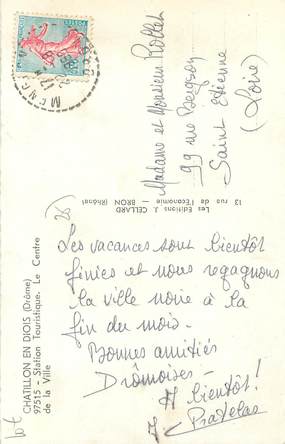 Madame et Monsieur
99 rue Bergson
Saint Etienne
(Loire)
Les Editions J. CELLARD
13 rue de l'Economie — BRON (Rhône)
CHATILLON EN DIOIS (Drôme)
97515 - Station Touristique. Le Centre
de la Ville
(26)
Les vacances sont bientôt
finies et nous regagnons
la ville noire à la
fin du mois.
Bonnes amitiés
Drômoises -
A bientôt!